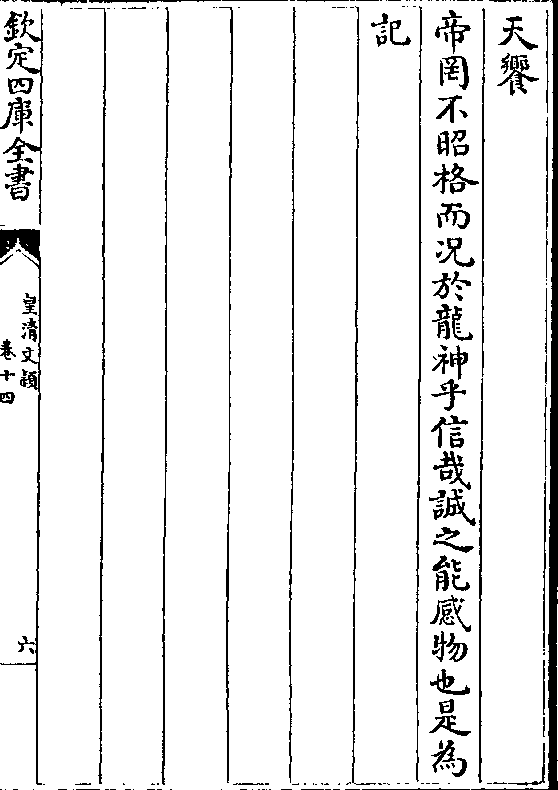 天饗
帝罔不昭格而况於龍神乎信哉誠之能感物也是為
記
欽定四庫全書
皇清文穎
卷十四
六